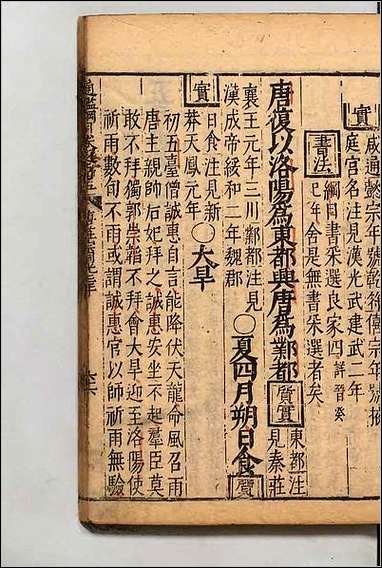 實
咸通懿宗年號乾符僖宗年號掖
庭宮名注見漢光武建武二年
書法
綱目書采選良家四詳晉癸
巳年舍是無書采選者矣
唐復以洛陽爲東都興唐爲鄴都
質實
東都注
見秦莊
襄王元年三川鄴都注見
漢成帝綏和二年魏郡
〇夏四月朔日食
質
實
日食注見新
莽天鳳元年
〇大旱
初五臺僧誠惠自言能降伏天龍命風召雨
唐主親帥后妃拜之誠惠安坐不起羣臣莫
敢不拜獨郭崇韜不拜會大旱迎至洛陽使
祈雨數旬不雨或謂誠惠官以師祈雨無驗
通鑑綱目